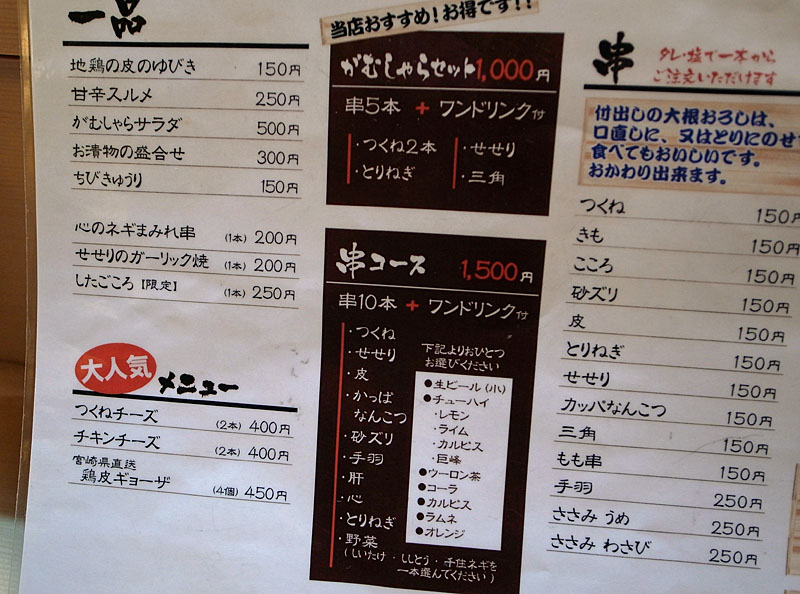 一品
地鶏の皮のゆびき 150円
甘辛スルメ 250円
がむしゃらサラダ 500円
お漬物の盛合せ 300円
ちびきゅうり 150円
心のネギまみれ串 (1本) 200円
せせりのガーリック焼 (1本) 200円
したごころ【限定】 (1本) 250円
大人気メニュー
つくねチーズ (2本) 400円
チキンチーズ (2本) 400円
宮崎県直送
鶏皮ギョーザ (4個) 450円
当店おすすめ!お得です!!
がむしゃらセット1,000円
串5本 + ワンドリンク付
・つくね2本
・とりねぎ
・せせり
・三角
串コース 1,500円
串10本 + ワンドリンク付
・つくね
・せせり
・皮
・かっぱ
なんこつ
・砂ズリ
・手羽
・肝
・心
・とりねぎ
・野菜
(しいたけ・ししとう・千住ネギを
一本選んでください)
下記よりおひとつ
お選びください
●生ビール(小)
●チューハイ
・レモン
・ライム
・カルピス
・巨峰
●ウーロン茶
●コーラ
●カルピス
●ラムネ
●オレンジ
串
タレ・塩で一本から
ご注文いただけます
付出しの大根おろしは、
口直しに、又はとりにのせ
食べてもおいしいです。
おかわり出来ます。
つくね 150円
きも 150円
こころ 150円
砂ズリ 150円
皮 150円
とりねぎ 150円
せせり 150円
カッパなんこつ 150円
三角 150円
もも串 150円
手羽 250円
ささみ うめ 250円
ささみ わさび 250円